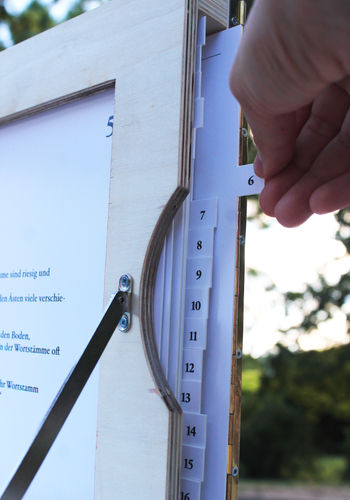 5
6
7
8
9
10
11
12
13
14
15
16
sind riesig und
den Ästen viele verschie-
den Boden,
n der Wortstämme oft
hr Wortstamm